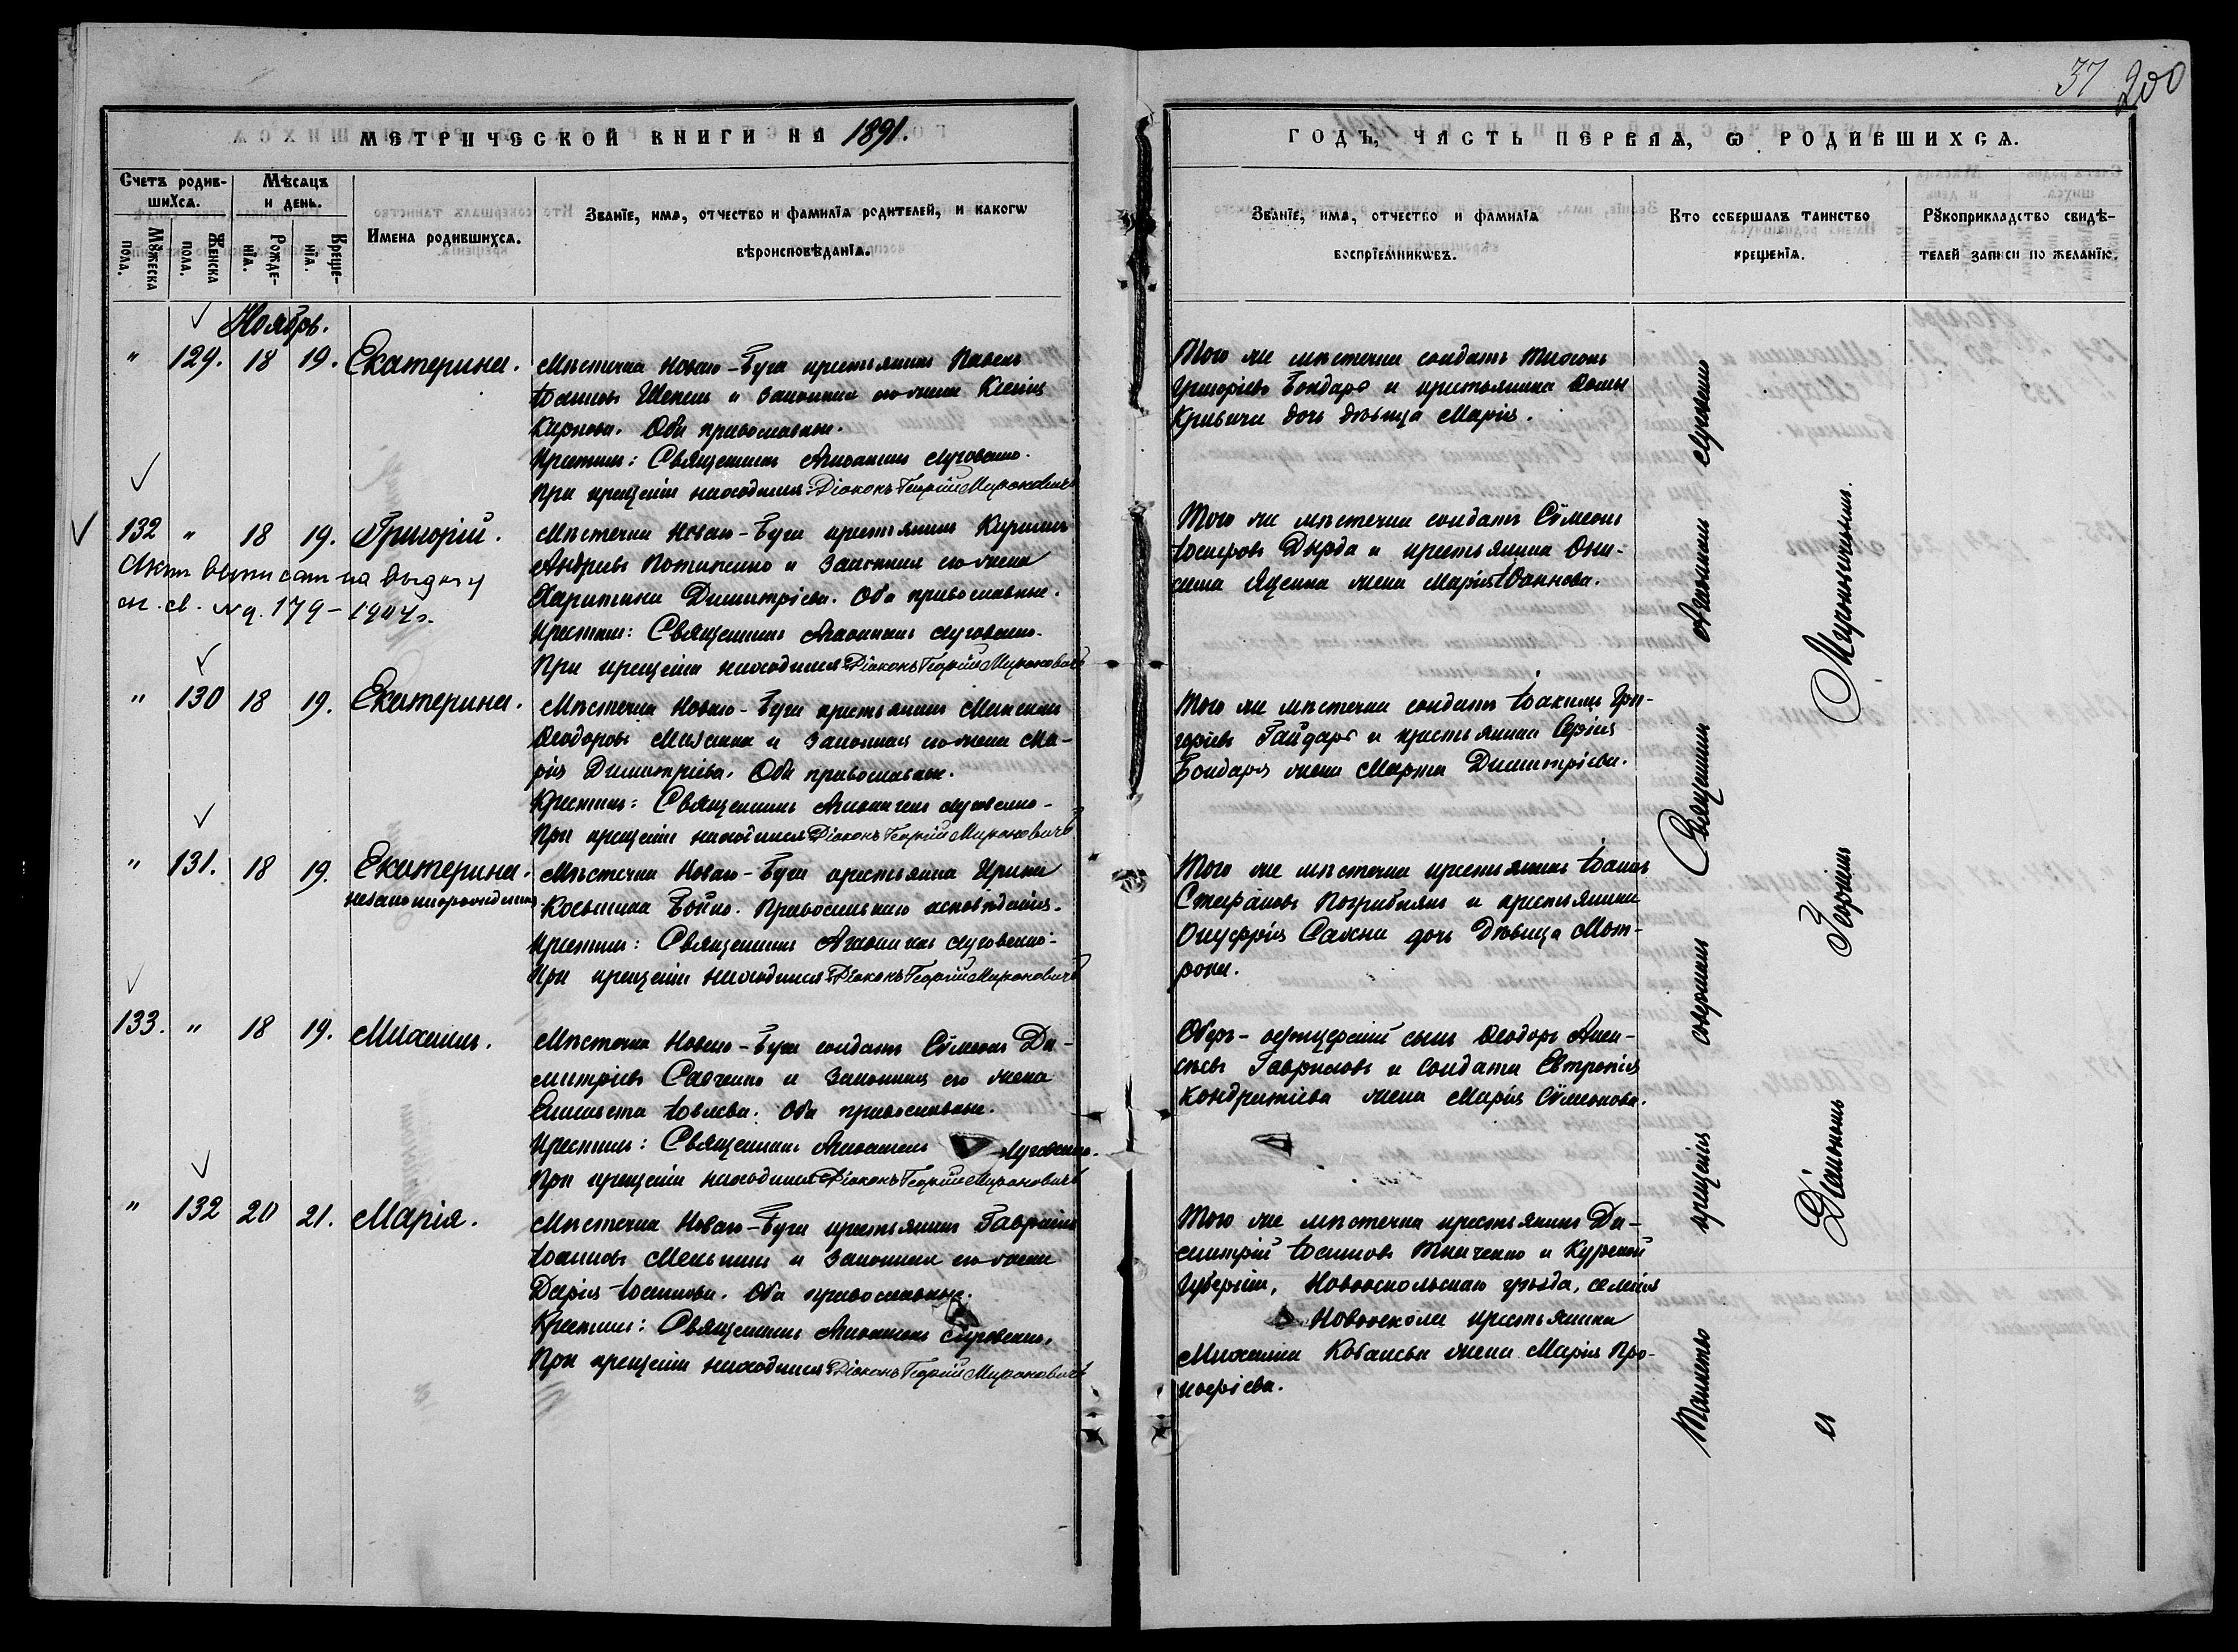 37 200
МЕТРИЧЕСКОЙ КНИГИ НА 1891.
ГОДЪ, ЧАСТЬ ПЕРВАЯ, Ѡ РОДИВШИХСЯ.
Счетъ родив-
шихся.
Мѣсяцъ
и день.
Мꙋжеска
пола.
Женска
пола.
Рожде-
нїя.
Креще-
нїя.
Имена родившихся.
Званїе, имя, отчество и фамилїя родителей, и какогѡ
вѣроисповѣданїя.
Званїе, имя, отчество и фамилїя
воспрїемникѡвъ.
Кто совершалъ таинство
крещенїя.
Рꙋкоприкладство свидѣ-
телей записи по желанїю.
Ноябрь.
" 129. 18 19. Екатерина.
Мѣстечка Новаго-Буга крестьянинъ Павелъ
Іоанновъ и законная его жена Ксенія
Карпова. Оба православные.
Крестилъ: Священникъ Аѳанасій Луговенко.
При крещеніи находился Діаконъ Георгій Мироновичъ
Того же мѣстечка солдатъ Тихонъ
Григорьевъ Бондарь и крестьянина Ѳомы
Кривича дочь дѣвица Марія.
132 " 18 19. Григорій.
Актъ выписанъ на выдачу
179-1904г.
Мѣстечка Новаго-Буга крестьянинъ Кириллъ
Андреевъ Потапенко и законная его жена
Харитина Димитріева. Оба православные.
Крестилъ: Священникъ Аѳанасій Луговенко.
При крещеніи находился Діаконъ Георгій Мироновичъ
Того же мѣстечка солдатъ Сѵмеонъ
Іосифовъ Дырда и крестьянина Они-
сима Яценка жена Марія Іоаннова.
" 130 18 19. Екатерина.
Мѣстечка Новаго-Буга крестьянинъ
Ѳеодоровъ и законная его жена Ма-
рія Димитріева. Оба православные.
Крестилъ: Священникъ Аѳанасій Луговенко.
При крещеніи находился Діаконъ Георгій Мироновичъ
Того же мѣстечка солдатъ Іоакимъ Гри-
горьевъ Гайдаръ и крестьянина Сергія
Бондаря жена Марѳа Димитріева.
" 131. 18 19. Екатерина.
незаконнорожденная
Мѣстечка Новаго-Буга крестьянка Ирина
Косьмина Бойко. Православнаго исповѣданія.
Крестилъ: Священникъ Аѳанасій Луговенко.
При крещеніи находился Діаконъ Георгій Мироновичъ
Того же мѣстечка крестьянинъ Іоаннъ
Стефановъ Погрибнякъ и крестьянина
Онуфрія дочь дѣвица Мот-
рона.
133. " 18 19. Михаилъ.
Мѣстечка Новаго-Буга солдатъ Сѵмеонъ Ди-
митріевъ Савченко и законная его жена
Елисавета Іовлева. Оба православные.
Крестилъ: Священникъ Аѳанасій Луговенко.
При крещеніи находился Діаконъ Георгій Мироновичъ
Оберъ-офицерскій сынъ Ѳеодоръ Алек-
сѣевъ Гавриловъ и солдата Евтропія
Кондратіева жена Марія Сѵмеонова.
" 132 20 21. Марія.
Мѣстечка Новаго-Буга крестьянинъ Гавріилъ
Іоанновъ Мельникъ и законная его жена
Дарія Іоаннова. Оба православные.
Крестилъ: Священникъ Аѳанасій Луговенко.
При крещеніи находился Діаконъ Георгій Мироновичъ
Того же мѣстечка крестьянинъ Ди-
митрій Іоанновъ Ткаченко и Курской
Губерніи, Новооскольскаго уѣзда, селенія
Новооскола крестьянина
Михаила жена Марія Про-
кофіева.
Таинство крещенія совершалъ Священникъ Аѳанасій Луговенко
съ Діакономъ Георгіемъ Мироновичемъ.